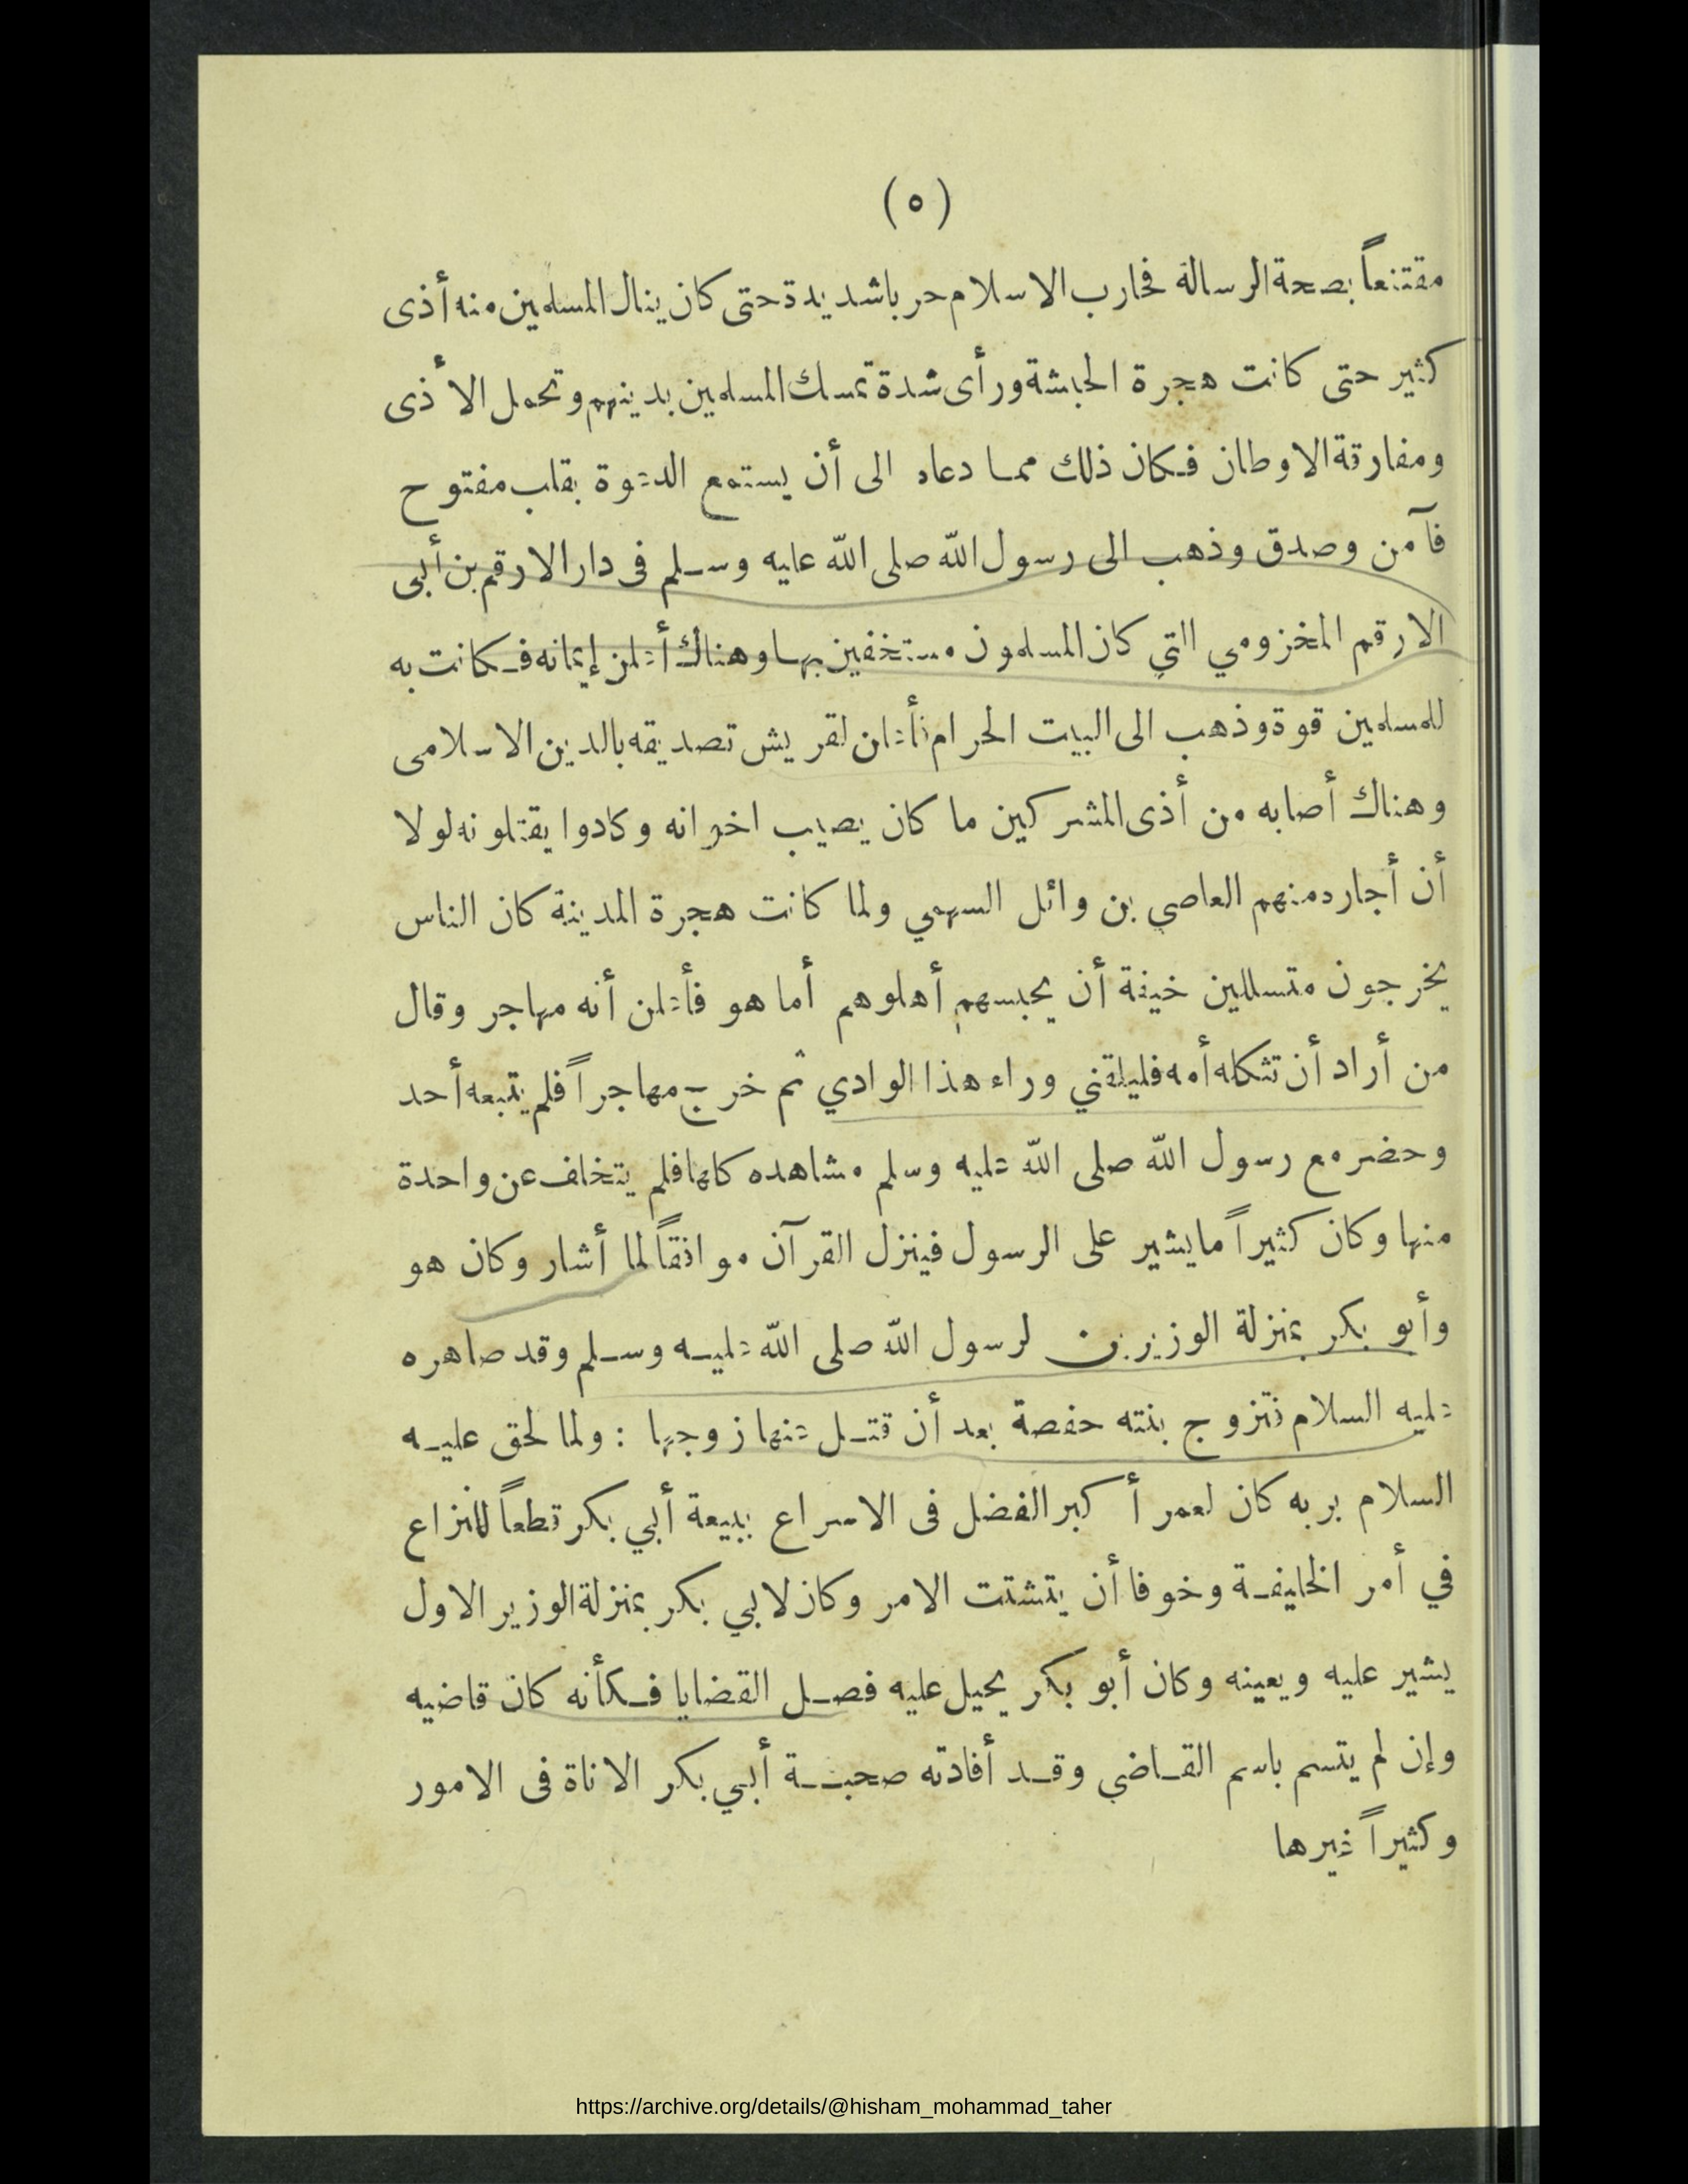 (٥)
مقتنعاً بصحة الرسالة فحارب الاسلام حربا شديدة حتى كان ينال المسلمين منه أذى
كثير حتى كانت هجرة الحبشة ورأى شدة تمسك المسلمين بدينهم وتحمل الأذى
ومفارقة الاوطان فكان ذلك مما دعاه الى أن يستمع الدعوة بقلب مفتوح
فآمن وصدق وذهب الى رسول الله صلى الله عليه وسلم فى دار الارقم بن أبى
الارقم المخزومي التي كان المسلمون مستخفين بها وهناك أعلن إيمانه فكانت به
للمسلمين قوة وذهب الى البيت الحرام فأعلن لقريش تصديقه بالدين الاسلامى
وهناك أصابه من أذى المشركين ما كان يصيب اخوانه وكادوا يقتلونه لولا
أن أجاره منهم العاصي بن وائل السهمي ولما كانت هجرة المدينة كان الناس
يخرجون متسللين خيفة أن يحبسهم أهلوهم أما هو فأعلن أنه مهاجر وقال
من أراد أن تثكله أمه فليلقني وراء هذا الوادي ثم خرج مهاجراً فلم يتبعه أحد
وحضر مع رسول الله صلى الله عليه وسلم مشاهده كلها فلم يتخلف عن واحدة
منها وكان كثيراً ما يشير على الرسول فينزل القرآن موافقاً لما أشار وكان هو
وأبو بكر بمنزلة الوزيرين لرسول الله صلى الله عليه وسلم وقد صاهره
عليه السلام فتزوج بنته حفصة بعد أن قتل عنها زوجها : ولما لحق عليه
السلام بربه كان لعمر أكبر الفضل فى الاسراع ببيعة أبي بكر قطعاً للنزاع
في أمر الخليفة وخوفا أن يتشتت الامر وكان لابي بكر بمنزلة الوزير الاول
يشير عليه ويعينه وكان أبو بكر يحيل عليه فصل القضايا فكأنه كان قاضيه
وإن لم يتسم باسم القاضي وقد أفادته صحبة أبي بكر الاناة فى الامور
وكثيراً غيرها
https://archive.org/details/@hisham_mohammad_taher